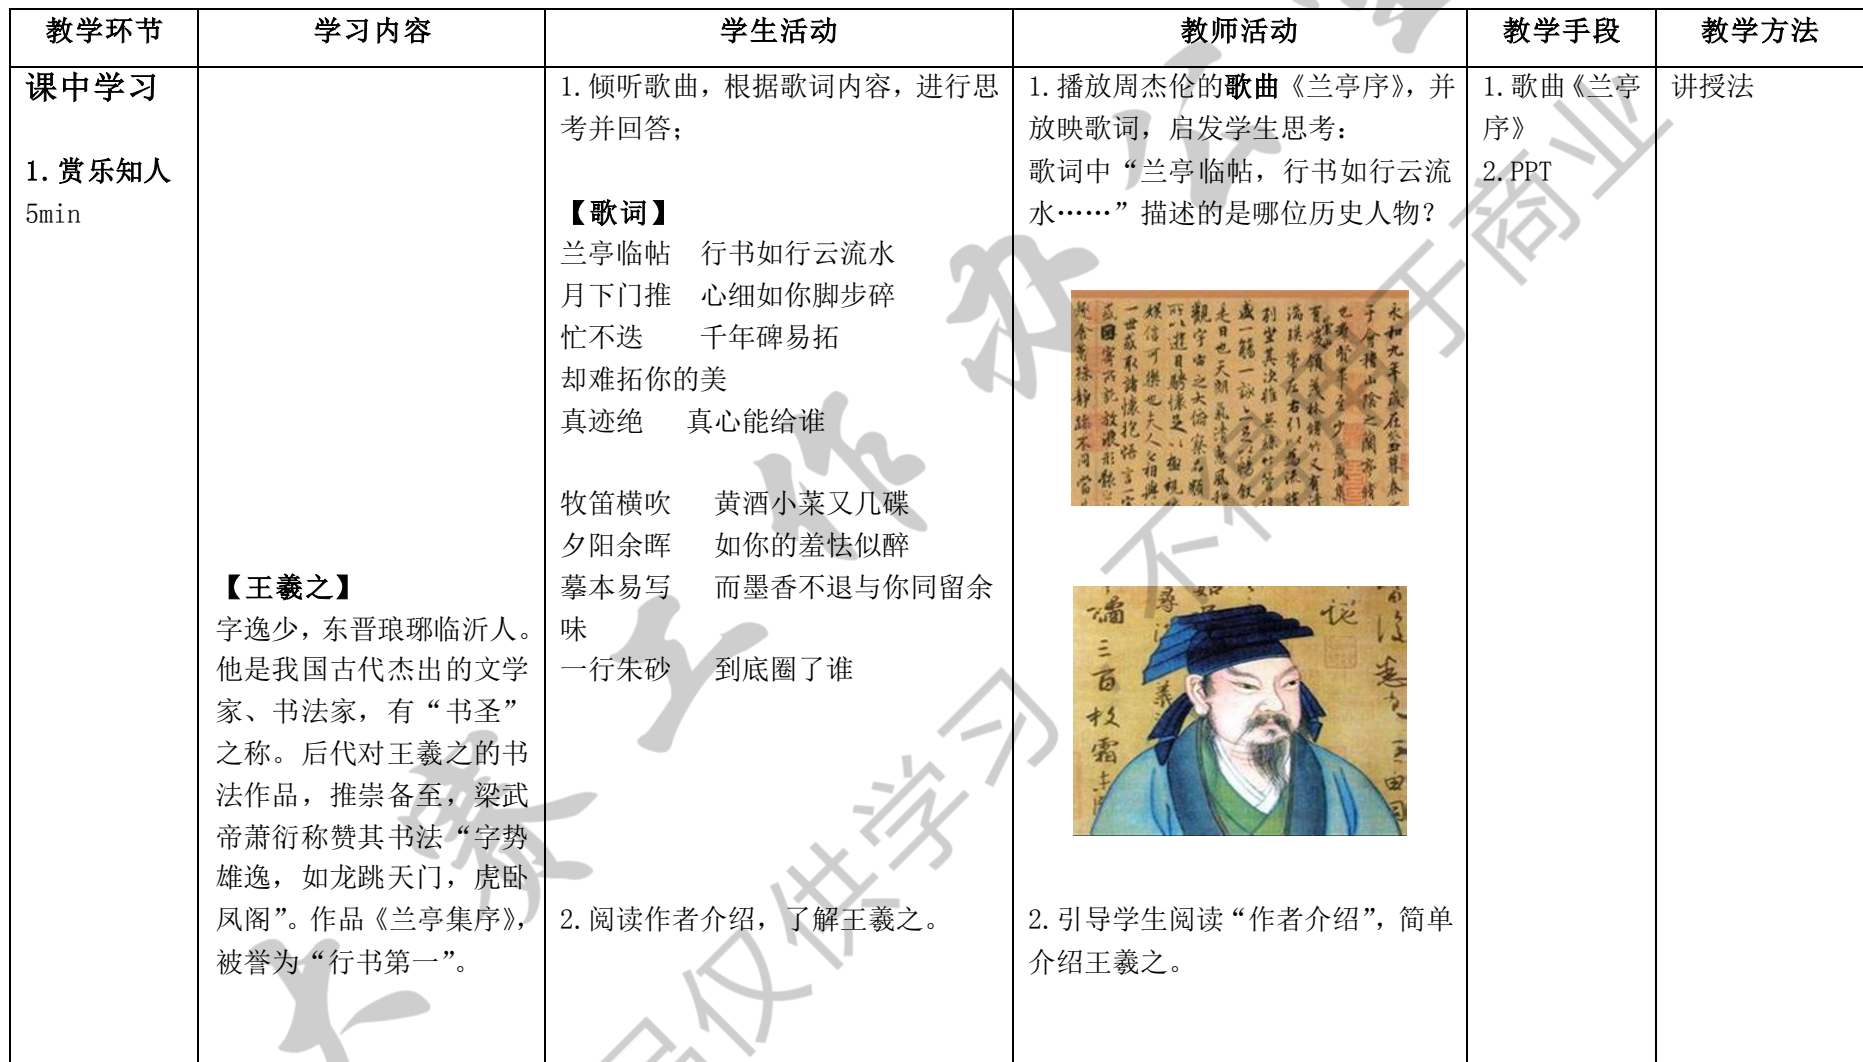 教学环节 学习内容 学生活动 教师活动 教学手段 教学方法
课中学习
1.赏乐知人
5min
【王羲之】
字逸少，东晋琅琊临沂人。
他是我国古代杰出的文学
家、书法家，有“书圣”
之称。后代对王羲之的书
法作品，推崇备至，梁武
帝萧衍称赞其书法“字势
雄逸，如龙跳天门，虎卧
凤阁”。作品《兰亭集序》，
被誉为“行书第一”。
1.倾听歌曲，根据歌词内容，进行思
考并回答；
【歌词】
兰亭临帖 行书如行云流水
月下门推 心细如你脚步碎
忙不迭 千年碑易拓
却难拓你的美
真迹绝 真心能给谁
牧笛横吹 黄酒小菜又几碟
夕阳余晖 如你的羞怯似醉
摹本易写 而墨香不退与你同留余
味
一行朱砂 到底圈了谁
2.阅读作者介绍，了解王羲之。
1.播放周杰伦的歌曲《兰亭序》，并
放映歌词，启发学生思考：
歌词中“兰亭临帖，行书如行云流
水……”描述的是哪位历史人物？
2.引导学生阅读“作者介绍”，简单
介绍王羲之。
1.歌曲《兰亭
序》
2.PPT
讲授法
不得用于商业
品仅供学习